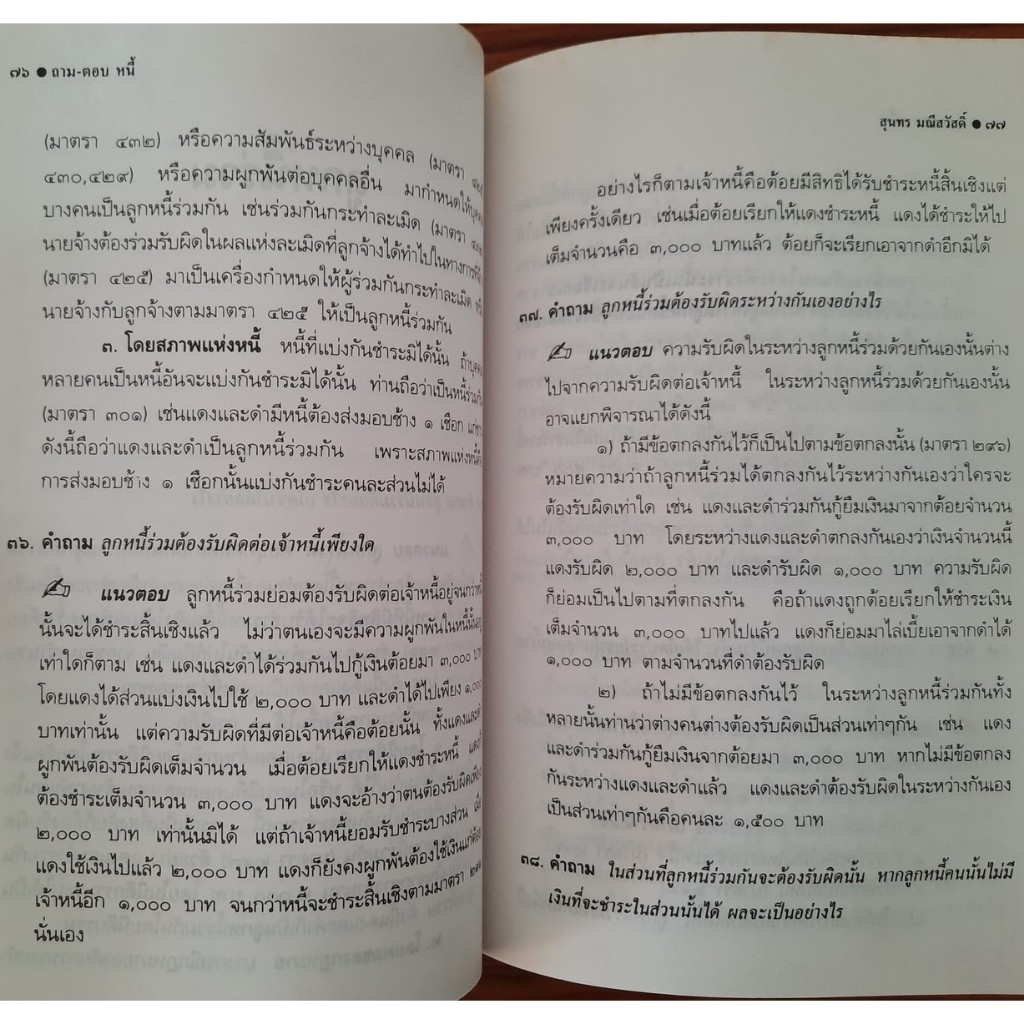 ๗๖ ● ถาม-ตอบ หนี้
(มาตรา ๔๓๒) หรือความสัมพันธ์ระหว่างบุคคล (มาตรา
๔๓๐,๔๒๙) หรือความผูกพันต่อบุคคลอื่น มากำหนดให้
บางคนเป็นลูกหนี้ร่วมกัน เช่นร่วมกันกระทำละเมิด (มาตรา
นายจ้างต้องร่วมรับผิดในผลแห่งละเมิดที่ลูกจ้างได้ทำไปในทางการที่
(มาตรา ๔๒๕) มาเป็นเครื่องกำหนดให้ผู้ร่วมกันกระทำละเมิด
นายจ้างกับลูกจ้างตามมาตรา ๔๒๕ ให้เป็นลูกหนี้ร่วมกัน
๓. โดยสภาพแห่งหนี้ หนี้ที่แบ่งกันชำระมิได้นั้น ถ้า
หลายคนเป็นหนี้อันจะแบ่งกันชำระมิได้นั้น ท่านถือว่าเป็นหนี้ร่วม
(มาตรา ๓๐๑) เช่นแดงและดำมีหนี้ต้องส่งมอบช้าง ๑ เชือก
ดังนี้ถือว่าแดงและดำเป็นลูกหนี้ร่วมกัน เพราะสภาพแห่งหนี้
การส่งมอบช้าง ๑ เชือกนั้นแบ่งกันชำระคนละส่วนไม่ได้
๓๖. คำถาม ลูกหนี้ร่วมต้องรับผิดต่อเจ้าหนี้เพียงใด
แนวตอบ ลูกหนี้ร่วมย่อมต้องรับผิดต่อเจ้าหนี้อยู่จนกว่าหนี้
นั้นจะได้ชำระสิ้นเชิงแล้ว ไม่ว่าตนเองจะมีความผูกพันในหนี้นั้น
เท่าใดก็ตาม เช่น แดงและดำได้ร่วมกันไปกู้เงินต้อยมา ๓,๐๐๐ บาท
โดยแดงได้ส่วนแบ่งเงินไปใช้ ๒,๐๐๐ บาท และดำได้ไปเพียง ๑,๐๐๐
บาทเท่านั้น แต่ความรับผิดที่มีต่อเจ้าหนี้คือต้อยนั้น ทั้งแดงและดำ
ผูกพันต้องรับผิดเต็มจำนวน เมื่อต้อยเรียกให้แดงชำระหนี้
ต้องชำระเต็มจำนวน ๓,๐๐๐ บาท แดงจะอ้างว่าตนต้องรับผิดเพียง
๒,๐๐๐ บาท เท่านั้นมิได้ แต่ถ้าเจ้าหนี้ยอมรับชำระบางส่วน
แดงใช้เงินไปแล้ว ๒,๐๐๐ บาท แดงก็ยังคงผูกพันต้องใช้เงินแก่
เจ้าหนี้อีก ๑,๐๐๐ บาท จนกว่าหนี้จะชำระสิ้นเชิงตามมาตรา
นั่นเอง
สุนทร มณีสวัสดิ์ ● ๗๗
อย่างไรก็ตามเจ้าหนี้คือต้อยมีสิทธิได้รับชำระหนี้สิ้นเชิงแต่
เพียงครั้งเดียว เช่นเมื่อต้อยเรียกให้แดงชำระหนี้ แดงได้ชำระให้ไป
เต็มจำนวนคือ ๓,๐๐๐ บาทแล้ว ต้อยก็จะเรียกเอาจากดำอีกมิได้
๓๗. คำถาม ลูกหนี้ร่วมต้องรับผิดระหว่างกันเองอย่างไร
แนวตอบ ความรับผิดในระหว่างลูกหนี้ร่วมด้วยกันเองนั้นต่าง
ไปจากความรับผิดต่อเจ้าหนี้ ในระหว่างลูกหนี้ร่วมด้วยกันเองนั้น
อาจแยกพิจารณาได้ดังนี้
๑) ถ้ามีข้อตกลงกันไว้ก็เป็นไปตามข้อตกลงนั้น (มาตรา ๒๙๖)
หมายความว่าถ้าลูกหนี้ร่วมได้ตกลงกันไว้ระหว่างกันเองว่าใครจะ
ต้องรับผิดเท่าใด เช่น แดงและดำร่วมกันกู้ยืมเงินมาจากต้อยจำนวน
๓,๐๐๐ บาท โดยระหว่างแดงและดำตกลงกันเองว่าเงินจำนวนนี้
แดงรับผิด ๒,๐๐๐ บาท และดำรับผิด ๑,๐๐๐ บาท ความรับผิด
ก็ย่อมเป็นไปตามที่ตกลงกัน คือถ้าแดงถูกต้อยเรียกให้ชำระเงิน
เต็มจำนวน ๓,๐๐๐ บาทไปแล้ว แดงก็ย่อมมาไล่เบี้ยเอาจากดำได้
๑,๐๐๐ บาท ตามจำนวนที่ดำต้องรับผิด
๒) ถ้าไม่มีข้อตกลงกันไว้ ในระหว่างลูกหนี้ร่วมกันทั้ง
หลายนั้นท่านว่าต่างคนต่างต้องรับผิดเป็นส่วนเท่าๆกัน เช่น แดง
และดำร่วมกันกู้ยืมเงินจากต้อยมา ๓,๐๐๐ บาท หากไม่มีข้อตกลง
กันระหว่างแดงและดำแล้ว แดงและดำต้องรับผิดในระหว่างกันเอง
เป็นส่วนเท่าๆกันคือคนละ ๑,๕๐๐ บาท
๓๘. คำถาม ในส่วนที่ลูกหนี้ร่วมกันจะต้องรับผิดนั้น หากลูกหนี้คนนั้นไม่มี
เงินที่จะชำระในส่วนนั้นได้ ผลจะเป็นอย่างไร